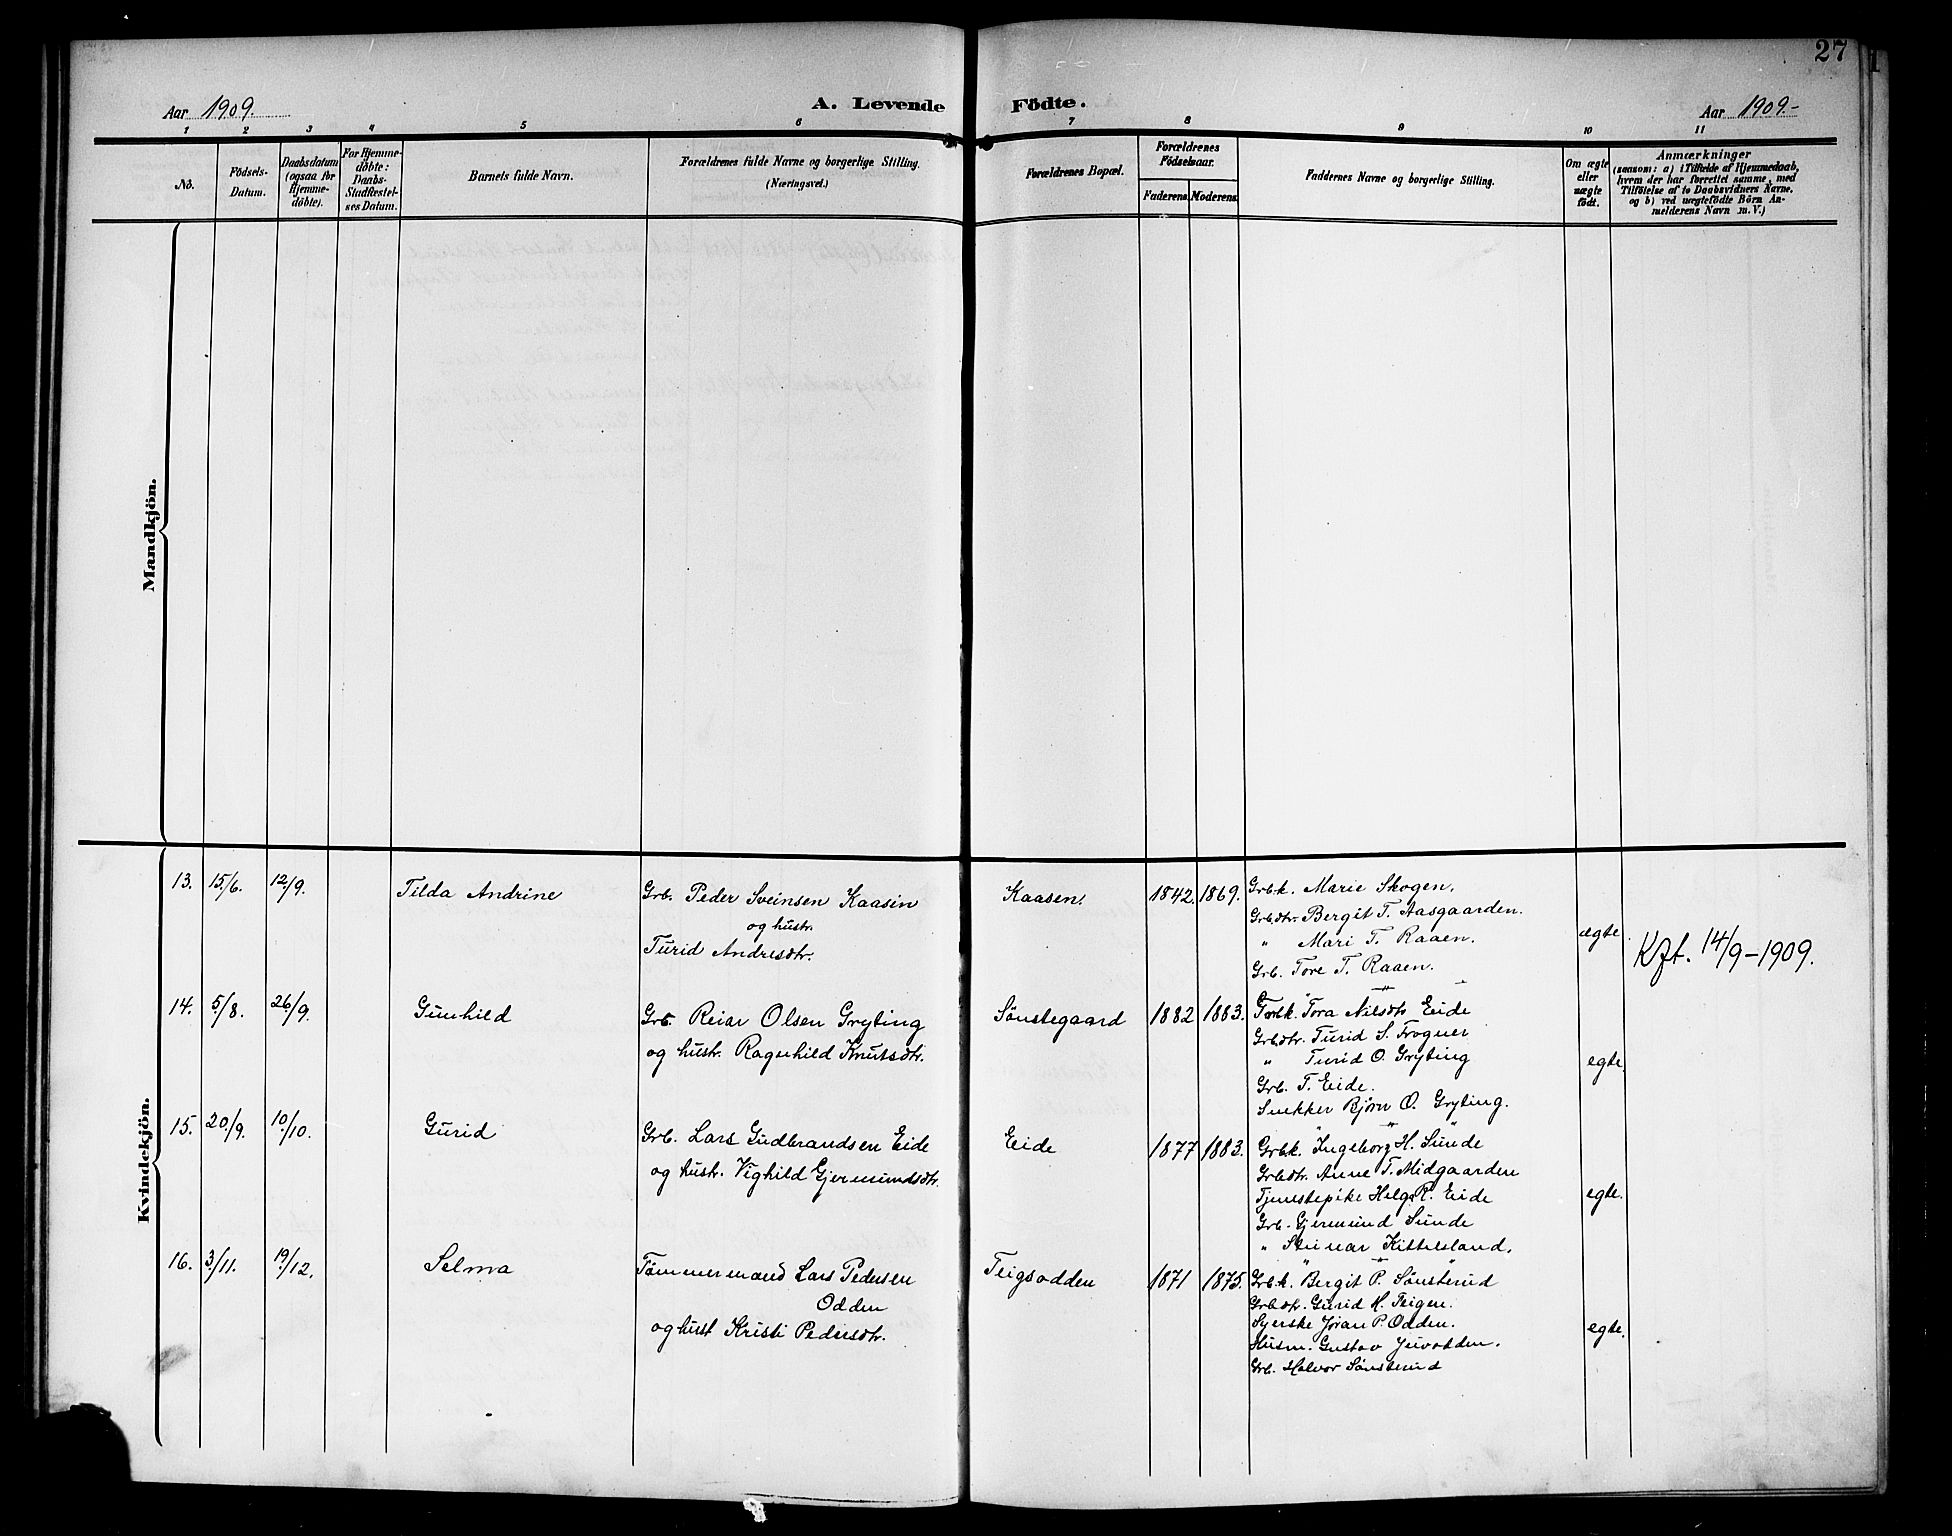 27
Aar 1909.
A. Levende Födte.
Aar 1909.-
1 2 3 4 5 6 7 8 9 10 11
No.
Födsels-
Datum.
Daabsdatum
(ogsaa for
Hjemme-
döbte).
For Hjemme-
döbte:
Daabs-
Stadfæstel-
ses Datum.
Barnets fulde Navn.
Forældrenes fulde Navne og borgerlige Stilling.
(Næringsvei.)
Forældrenes Bopæl.
Forældrenes
Födselsaar.
Faderens. Moderens.
Faddernes Navne og borgerlige Stilling.
Om ægte
eller
uægte
født.
Anmærkninger
(saasom: a) i Tilfælde af Hjemmedaab,
hvem der har forrettet samme, med
Tilföielse af to Daabsvidners Navne,
og b) ved uægtefödte Börn An-
melderens Navn m. V.)
Mandkjön.
Kvindekjön.
13. 15/6. 12/9. Tilda Andrine
Grb. Peder Sveinsen Kaasin
og hustr.
Turid Andresdtr.
Kaasen. 1842. 1869.
Grbk. Marie Skogen.
Grbdtr. Bergit T. Aasgaarden.
" Mari T. Raaen.
Grb. Tore T. Raaen.
ægte.
Kft. 14/9-1909.
14. 5/8. 26/9. Gunhild
Grb. Reiar Olsen Gryting
og hustr. Ragnhild Knutsdtr.
Sønstegaard 1882 1883.
Grbk. Tora Nilsdtr Eide
Grbdtr. Turid S. Frogner
" Turid O. Gryting
Grb. T. Eide.
Snekker Bjørn O. Gryting.
egte.
15. 20/9. 10/10. Gurid
Grb. Lars Gudbrandsen Eide
og hustr. Vighild Gjermundsdtr.
Eide 1877 1883.
Grbk. Ingeborg H. Sunde
Grbdtr. Anne T. Midgaarden
Tjenstepike Helga R. Eide
Grb. Gjermund Sunde
" Steinar Kittelsland.
egte.
16. 3/11. 19/12. Selma
Tømmermand Lars Pedersen
Odden
og hust Kristi Pedersdtr.
Teigsodden 1871 1875.
Grbk. Bergit P. Sønsterud
Grbdtr. Gurid H. Teigen.
Syerske Jøran P. Odden.
Husm. Gustav Juvodden.
Grb. Halvor Sønsterud
egte.